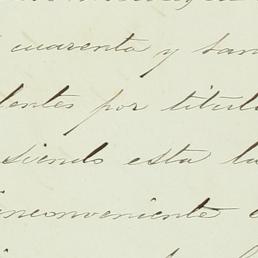 cuarenta y san
dentes por titulo
siendo esta la
inconveniente